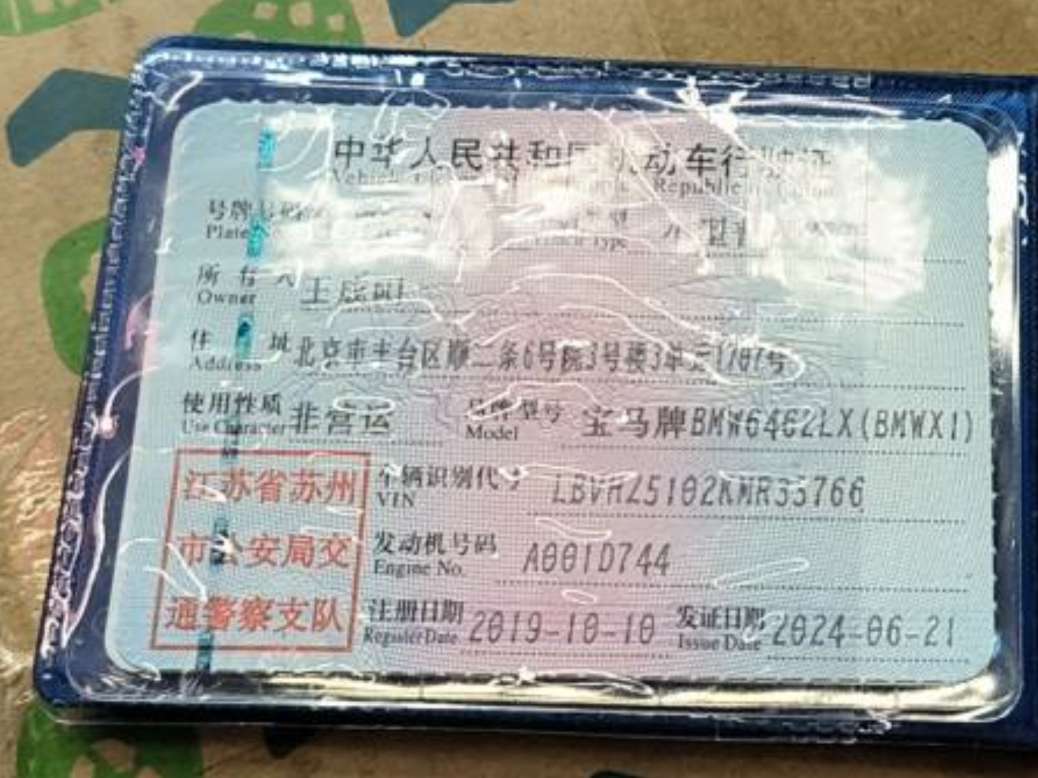 中华人民共和国机动车行驶证
Vehicle Republic of China
号牌号码
Plate
Vehicle Type
所有人
Owner
住 址 北京市丰台区顺二条6号院3号楼3单元1707号
Address
使用性质 非营运 品牌型号 宝马牌BMW6462LX(BMWX1)
Use Character Model
江苏省苏州
市公安局交
通警察支队
车辆识别代号
VIN
发动机号码 A001D744
Engine No.
注册日期 2019-10-10 发证日期 2024-06-21
Register Date Issue Date